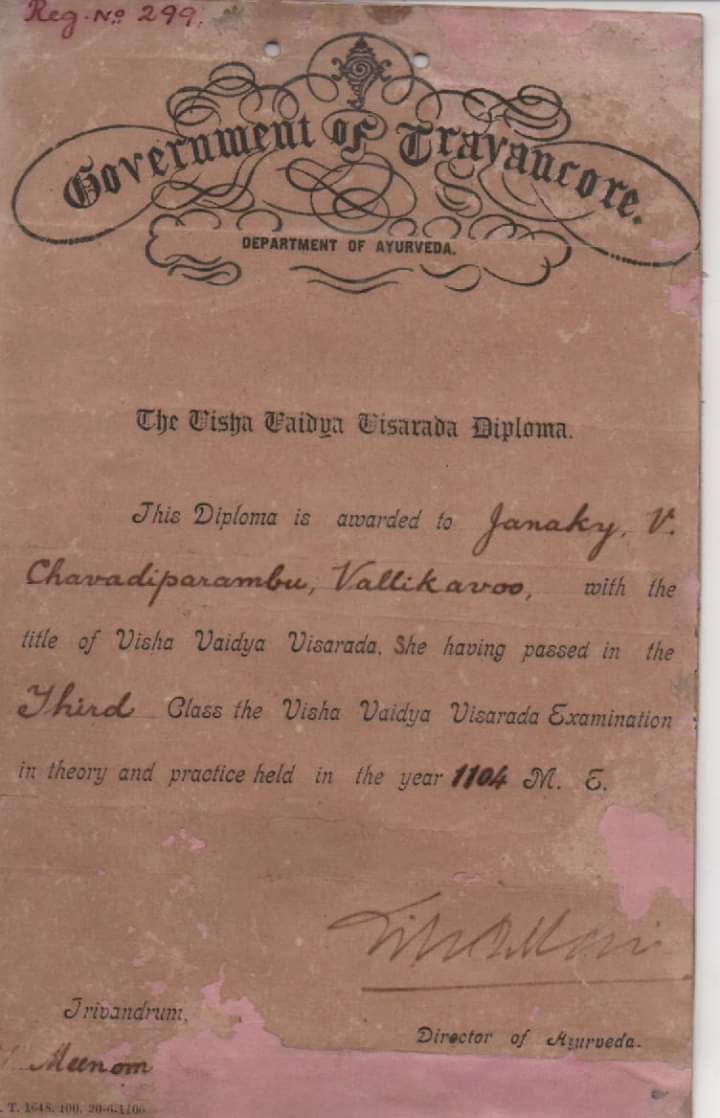 Reg. No 299.
Government of Travancore.
DEPARTMENT OF AYURVEDA.
The Visha Vaidya Visarada Diploma.
This Diploma is awarded to Janaky, V.
Chavadiparambu, Vallikavoo, with the
title of Visha Vaidya Visarada. She having passed in the
Third Class the Visha Vaidya Visarada Examination
in theory and practice held in the year 1104 M. E.
Trivandrum,
Director of Ayurveda.
Meenom
T. 1648. 100. 20-6-1106